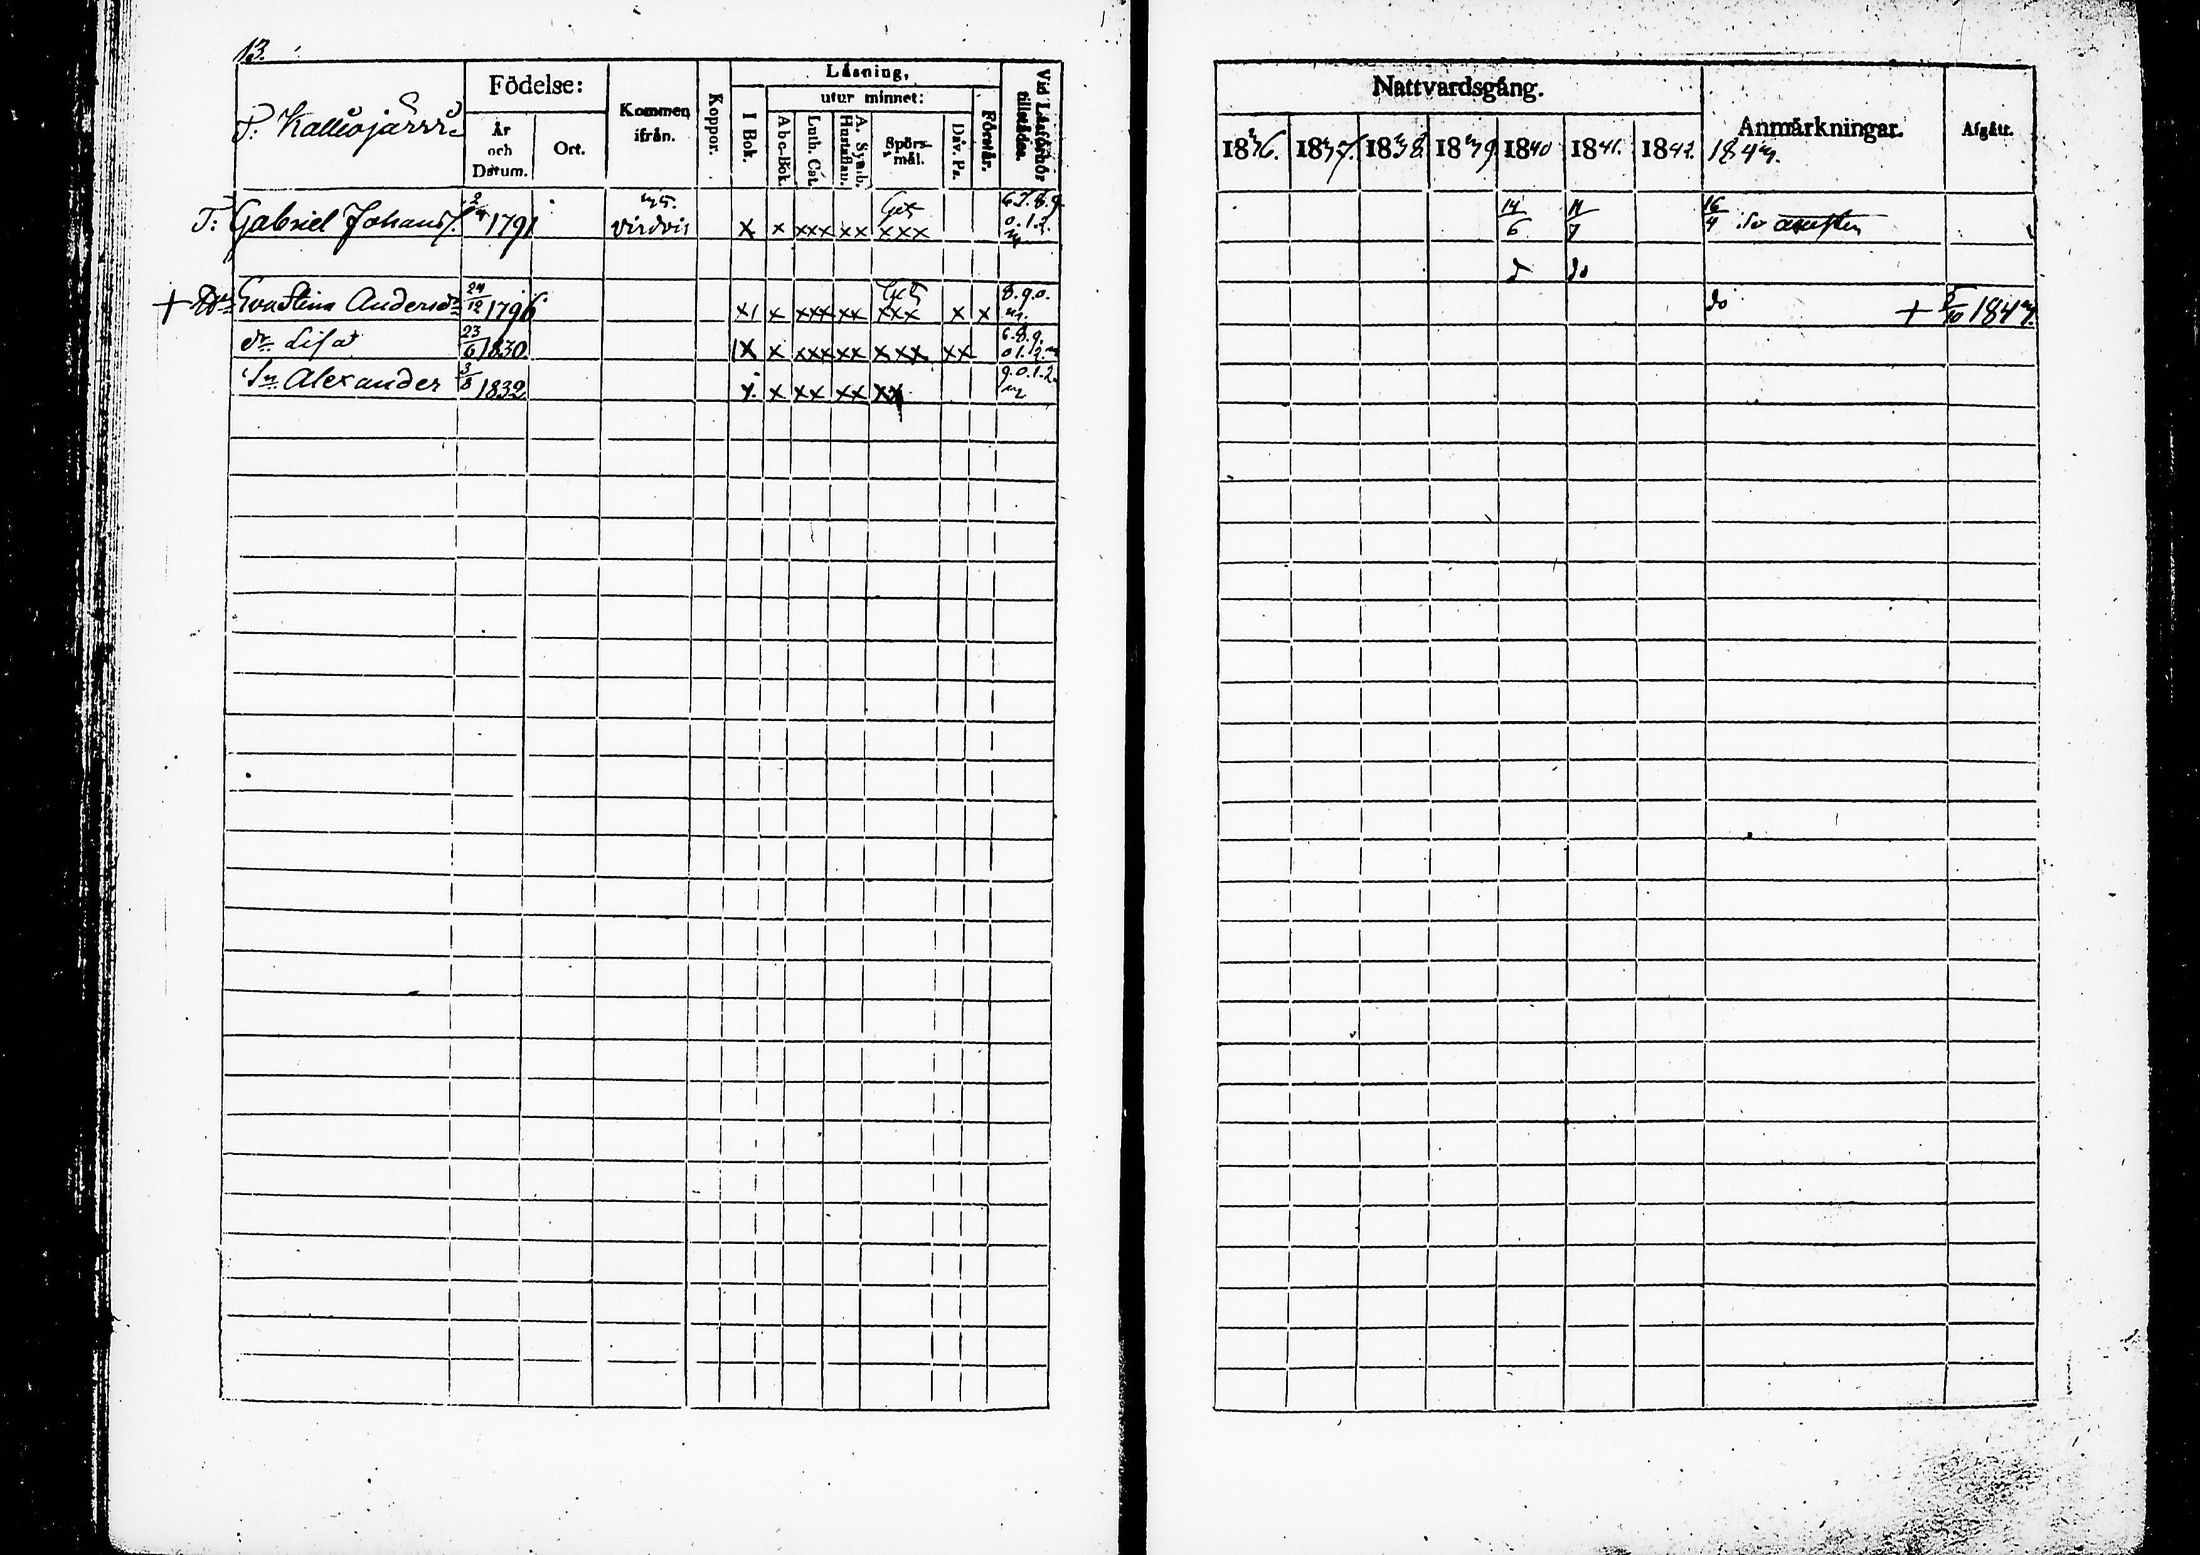 13.
P: Kalliojärvi
Födelse:
År och Datum.
Ort.
Kommen ifrån.
Koppor.
Läsning,
I Bok.
utur minnet:
Abc-Bok.
Luth. Cat.
A. Symb. Hustaflan.
Spörsmål.
Dav. Ps.
Förstår.
Vid Läsförhör tillstädes.
T: Gabriel Johanss. 1791 35. virdois x x xxx xx xxx 6.7.8.9. 0.1.2.
Eva Stina Andersdr 24/12 1796 x x xxx xx xxx x x 8.9.0.
dr Lisa 23/6 1830 x x xxx xx xxx xx 6.8.9. 0.1.2.
Sn Alexander 3/8 1832 x x xx xx xx 9.0.1.2.
Nattvardsgång.
Anmärkningar.
Afgått.
1836. 1837. 1838. 1839. 1840 1841. 1842. 1843.
14/6 11/7 16/4
do
do + 5/10 1843.